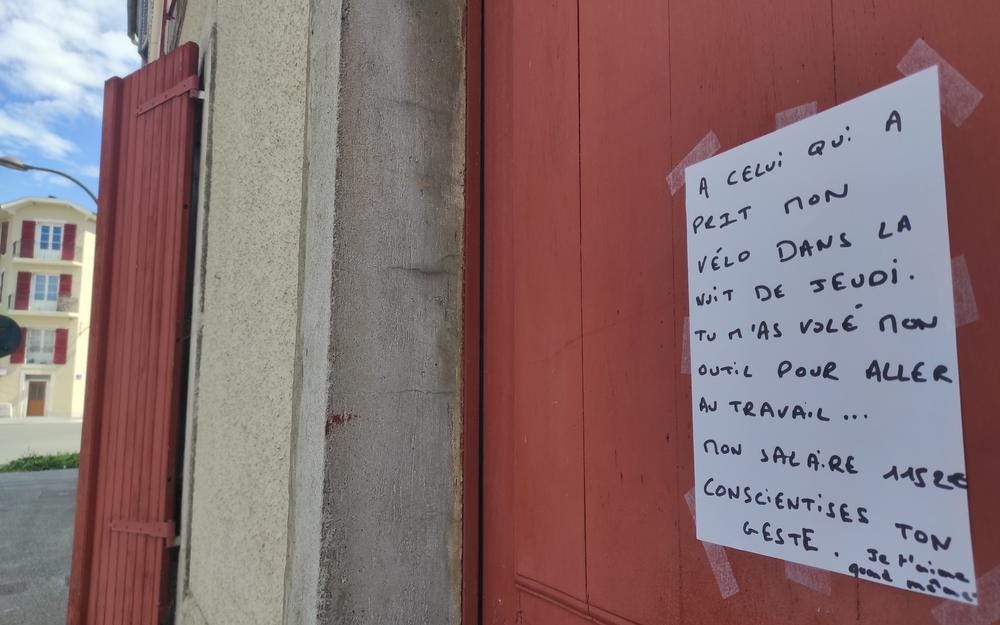 A CELUI QUI A
PRIT MON
VÉLO DANS LA
NUIT DE JEUDI.
TU M'AS VOLÉ MON
OUTIL POUR ALLER
AU TRAVAIL...
MON SALAIRE 1152€
CONSCIENTISES TON
GESTE. Je t'aime
quand même